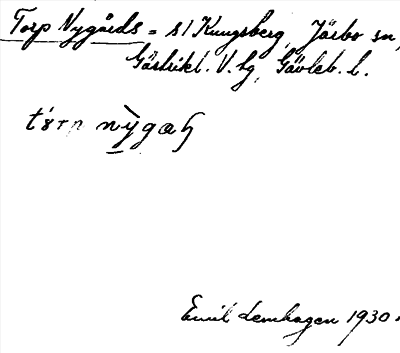 Torp Nygårds = s/ Kungsberg, Järbo sn,
Gästrikl. V. hg, Gävleb. l.
nỳgaꞕ
Emil Lemhagen 1930.